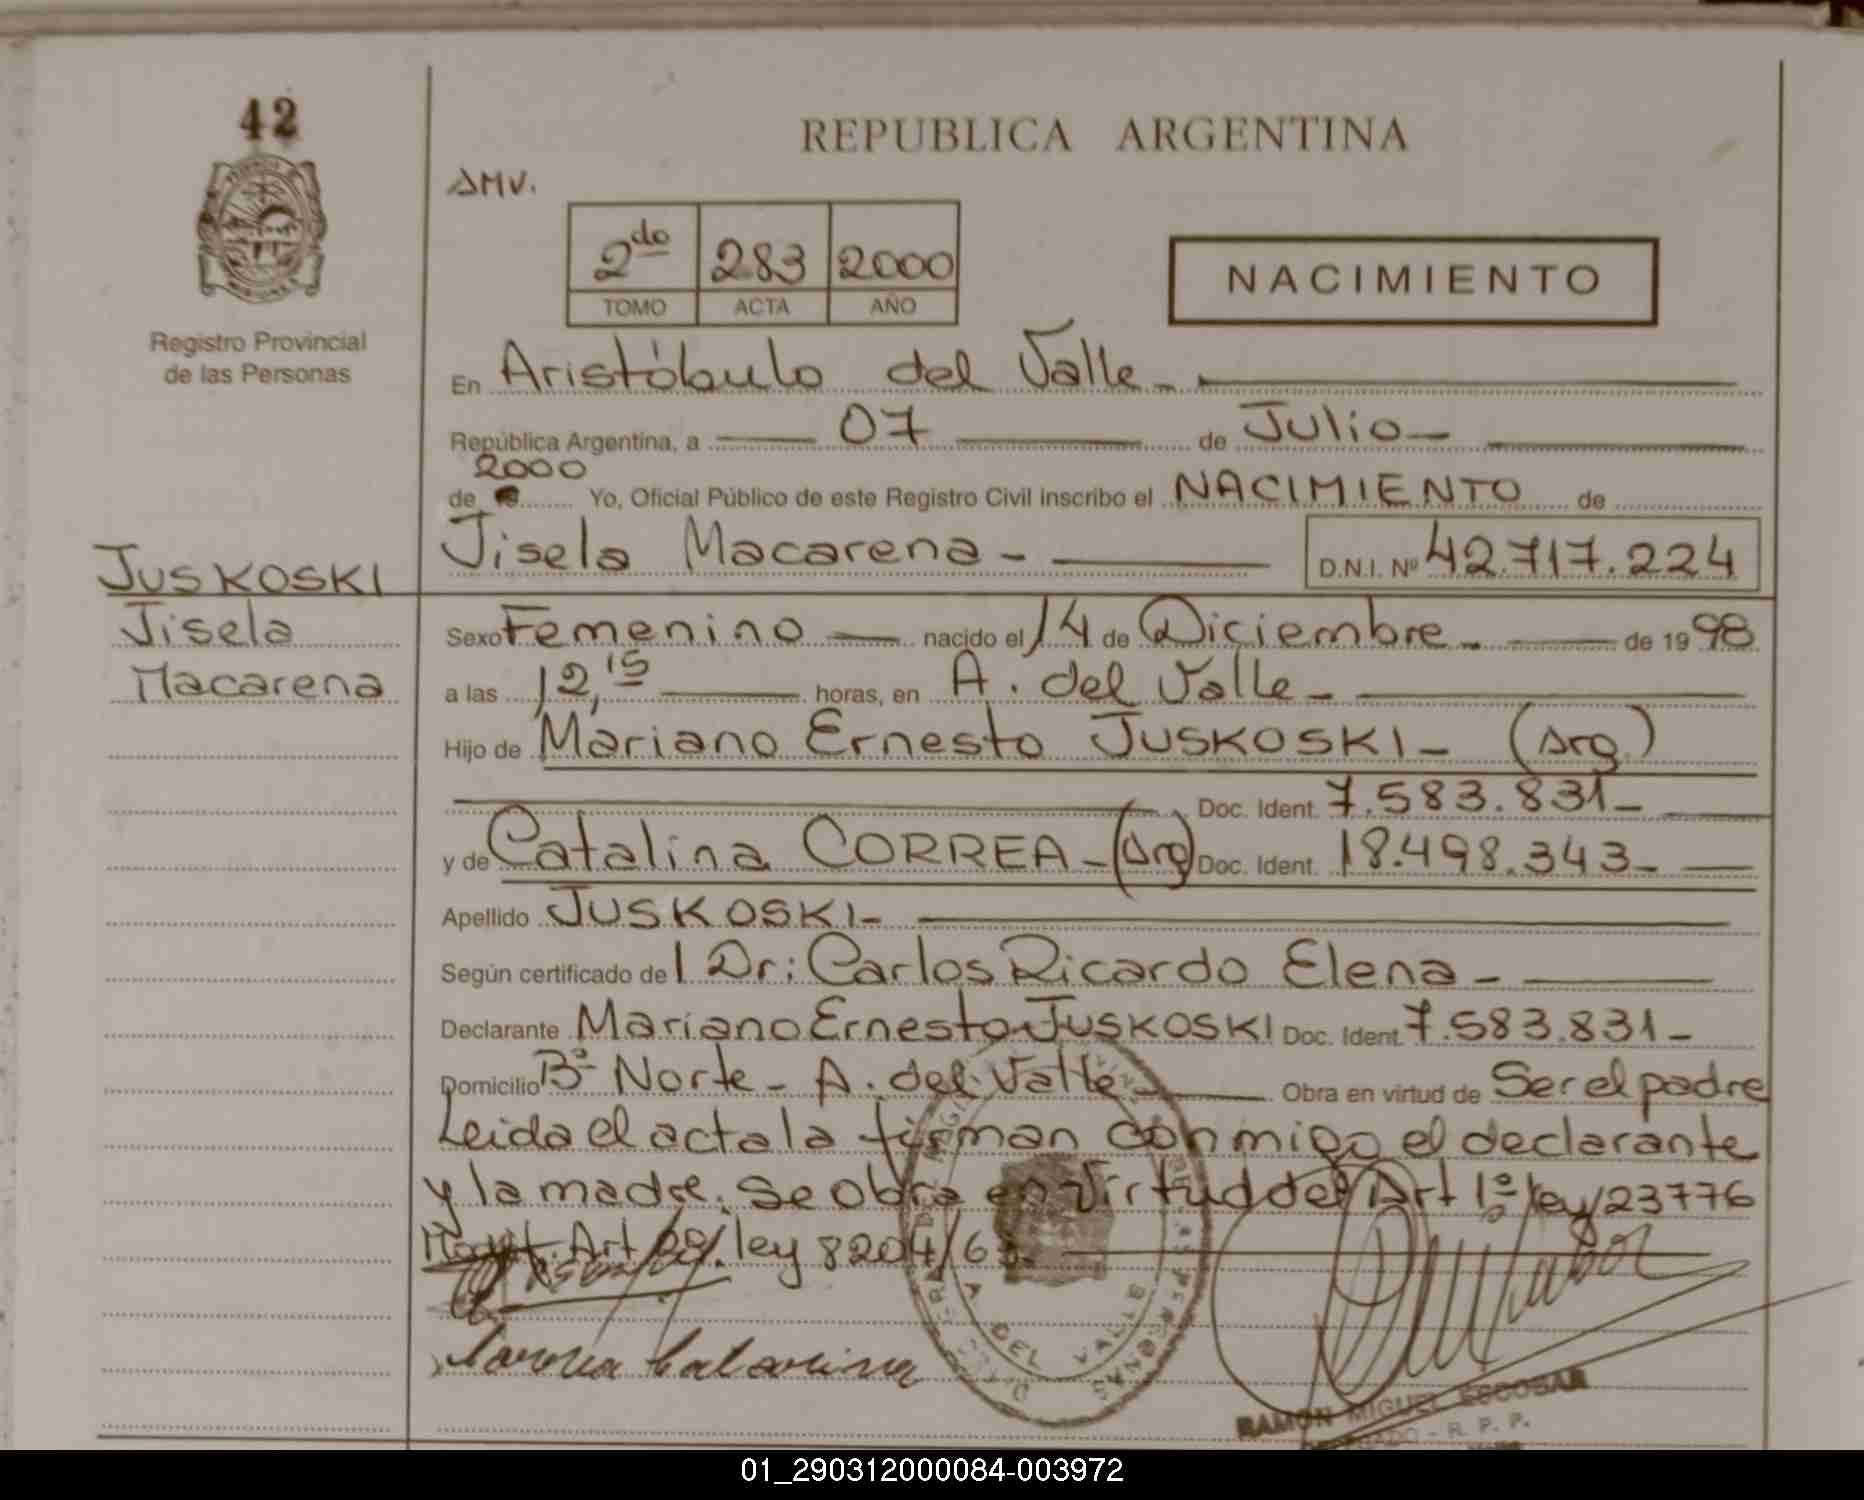 42
REPUBLICA ARGENTINA
AMV.
2do 283 2000
TOMO ACTA AÑO
NACIMIENTO
Registro Provincial
de las Personas
En Aristóbulo del Valle -
República Argentina, a 07 de Julio -
2000
de Yo, Oficial Público de este Registro Civil inscribo el NACIMIENTO de
Jisela Macarena - D.N.I. Nº 42.717.224
JUSKOSKI
Jisela
Macarena
Sexo Femenino nacido el 14 de Diciembre - de 1998
a las 12,15 horas, en A. del Valle -
Hijo de Mariano Ernesto JUSKOSKI - (Arg.)
Doc. Ident. 7.583.831 -
y de Catalina CORREA - (Arg) Doc. Ident. 18.498.343 -
Apellido JUSKOSKI -
Según certificado de l Dr: Carlos Ricardo Elena -
Declarante Mariano Ernesto JUSKOSKI Doc. Ident. 7.583.831 -
Domicilio Bº Norte - A. del Valle - Obra en virtud de Ser el padre
Leida el acta la firman conmigo el declarante
y la madre. Se obra en virtud del Art 1º ley 23776
Art ley 8204/63.
Correa Catalina
DEL VALLE
RAMON MIGUEL ESCOBAR
R. P. P.
01_290312000084-003972